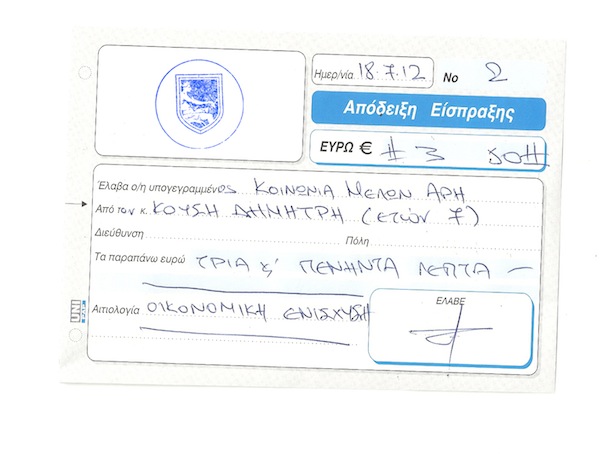 Ημερ/νία 18.7.12 No 2
Απόδειξη Είσπραξης
ΕΥΡΩ € # 3 50#
Έλαβα ο/η υπογεγραμμένος ΚΟΙΝΩΝΙΑ ΜΕΛΩΝ ΑΡΗ
Από τον κ. ΚΟΥΣΗ ΔΗΜΗΤΡΗ (ετών 7)
Διεύθυνση Πόλη
Τα παραπάνω ευρώ ΤΡΙΑ & ΠΕΝΗΝΤΑ ΛΕΠΤΑ —
Αιτιολογία ΟΙΚΟΝΟΜΙΚΗ ΕΝΙΣΧΥΣΗ
ΕΛΑΒΕ
UNI